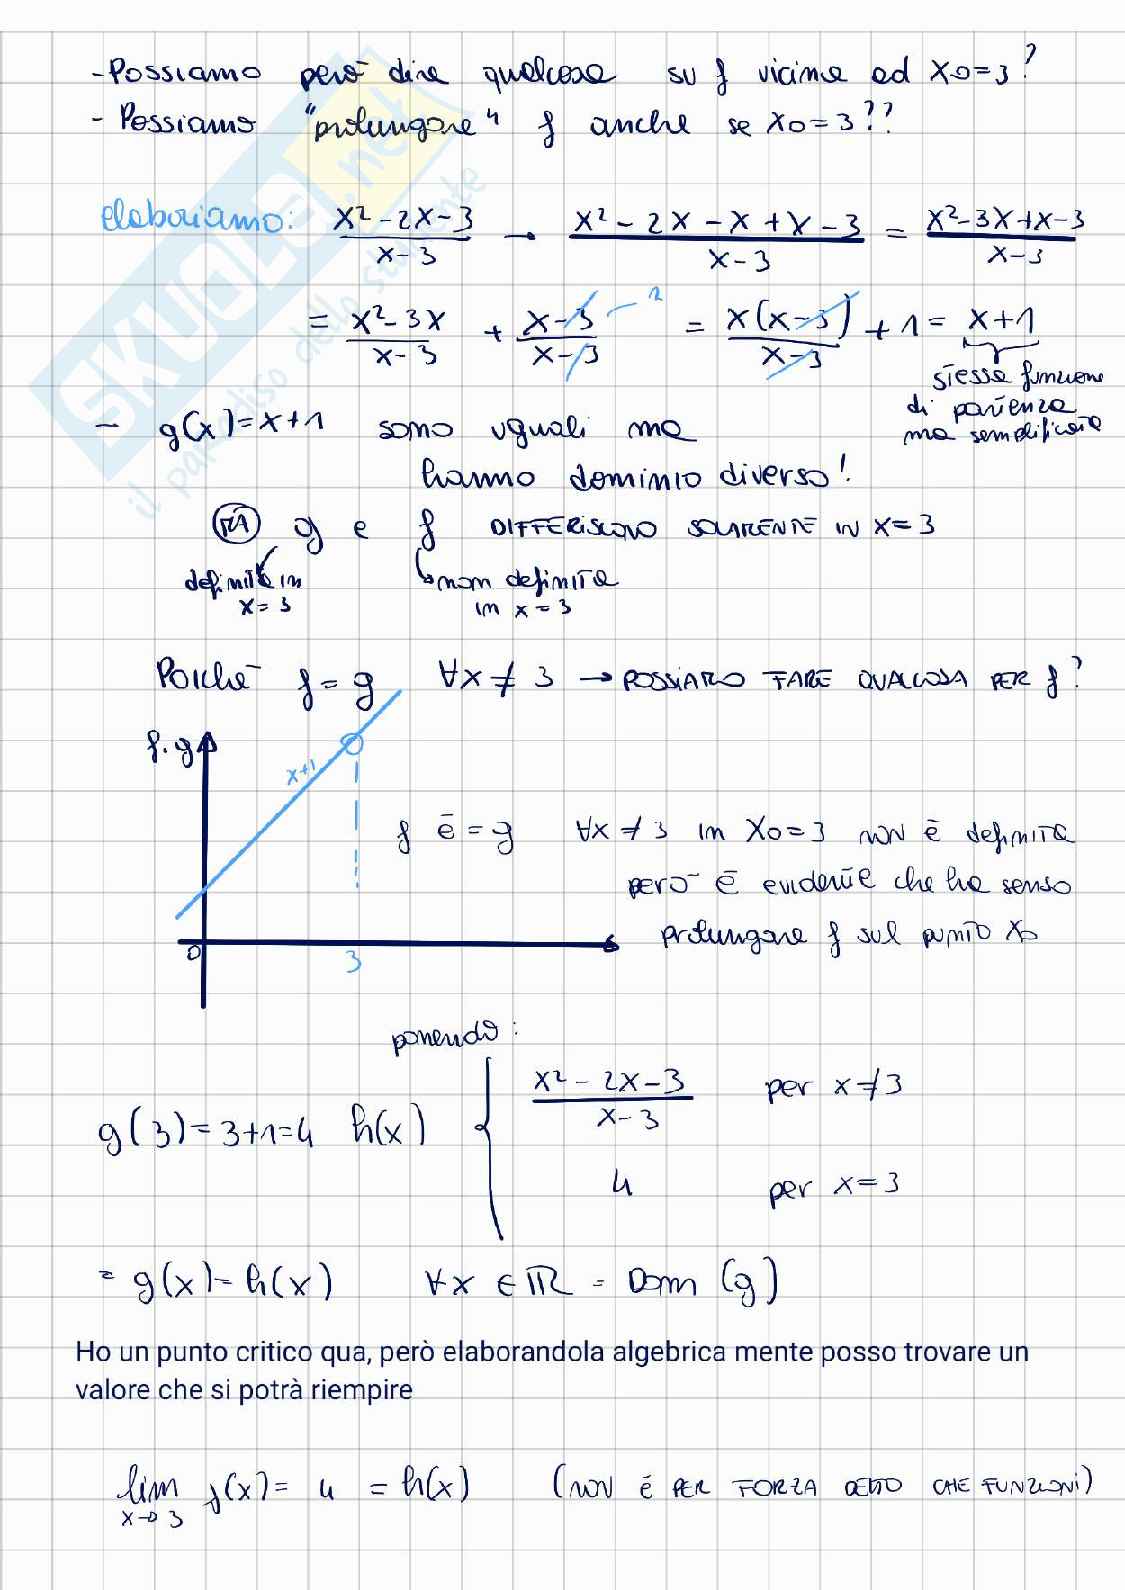 - Possiamo però dire qualcosa su f vicino ad x0=3?
- Possiamo "prolungare" f anche se x0=3??
elaboriamo: x²-2x-3 / x-3 → x²-2x-x+x-3 / x-3 = x²-3x+x-3 / x-3
= x²-3x / x-3 + x-3 / x-3 1 = x(x-3) / x-3 + 1 = x+1
stessa funzione
di partenza
ma semplificata
- g(x)=x+1 sono uguali ma
hanno dominio diverso!
MA g e f DIFFERISCONO SOLAMENTE IN X=3
definita in x=3
non definita in x=3
Poiché f=g ∀x≠3 → POSSIAMO FARE QUALCOSA PER f?
f.g
x+1
0
3
f è = g ∀x≠3 in X0=3 NON è definita
però è evidente che ha senso
prolungare f sul punto x0
ponendo:
g(3)=3+1=4 h(x) { x²-2x-3 / x-3 per x≠3
4 per x=3
= g(x)=h(x) ∀x∈ℝ = Dom(g)
Ho un punto critico qua, però elaborandola algebrica mente posso trovare un
valore che si potrà riempire
lim x→3 f(x)= 4 = h(x) (NON È PER FORZA DETTO CHE FUNZIONI)
SKUOLA.net
il paradiso dello studente